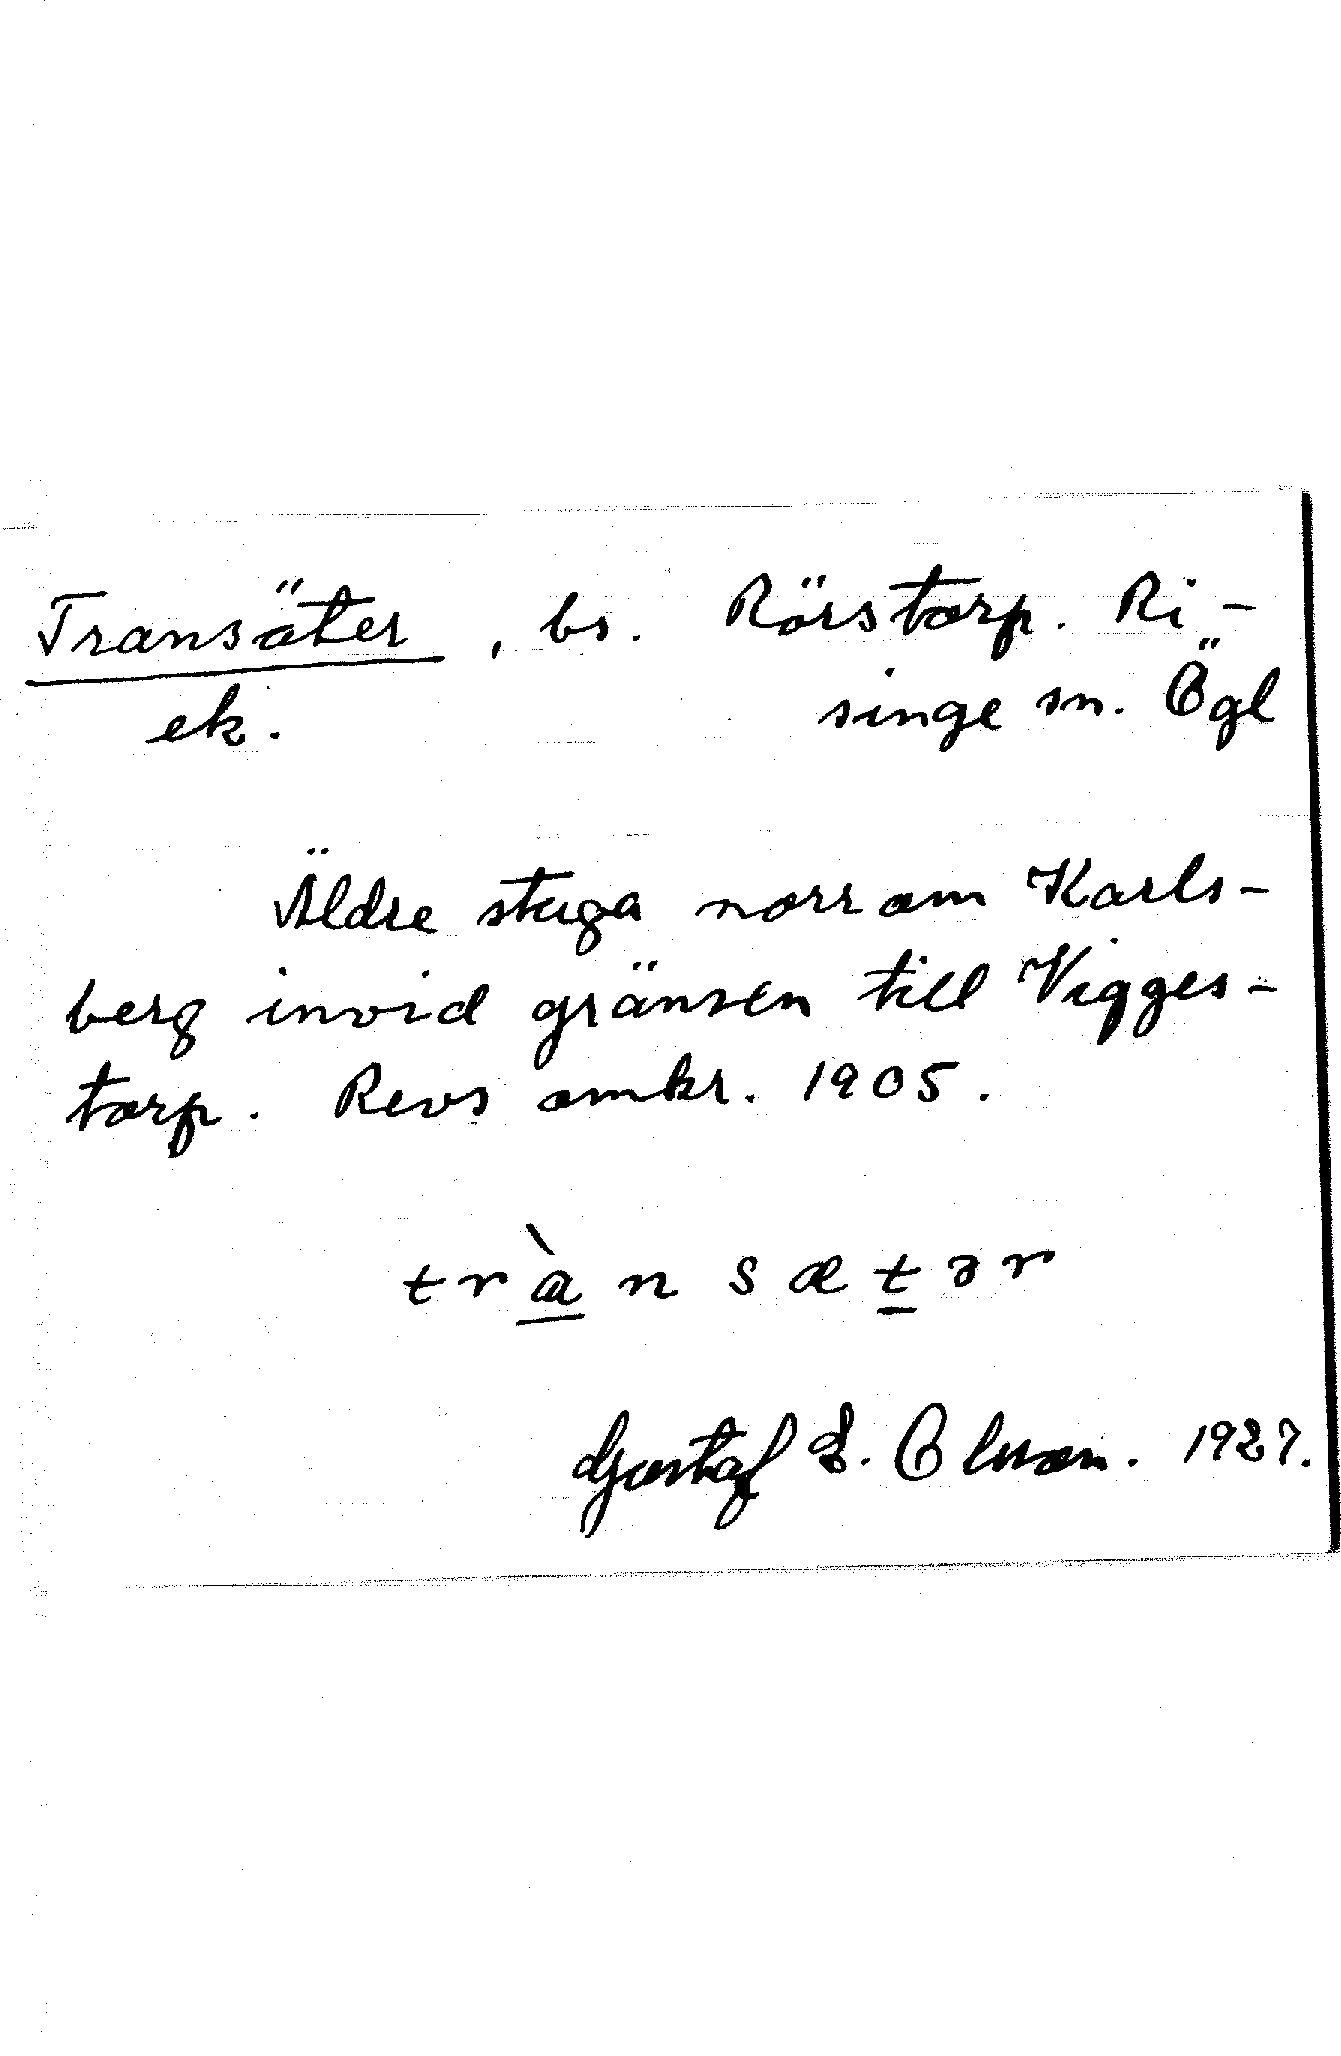 Transäter, bs. Rörstorp. Ri-
ek. singe sn. Ögl
Äldre stuga norr om Karls-
berg invid gränsen till Vigges-
torp. Revs omkr. 1905.
tràn sætər
Gustaf E. Olsson. 1927.